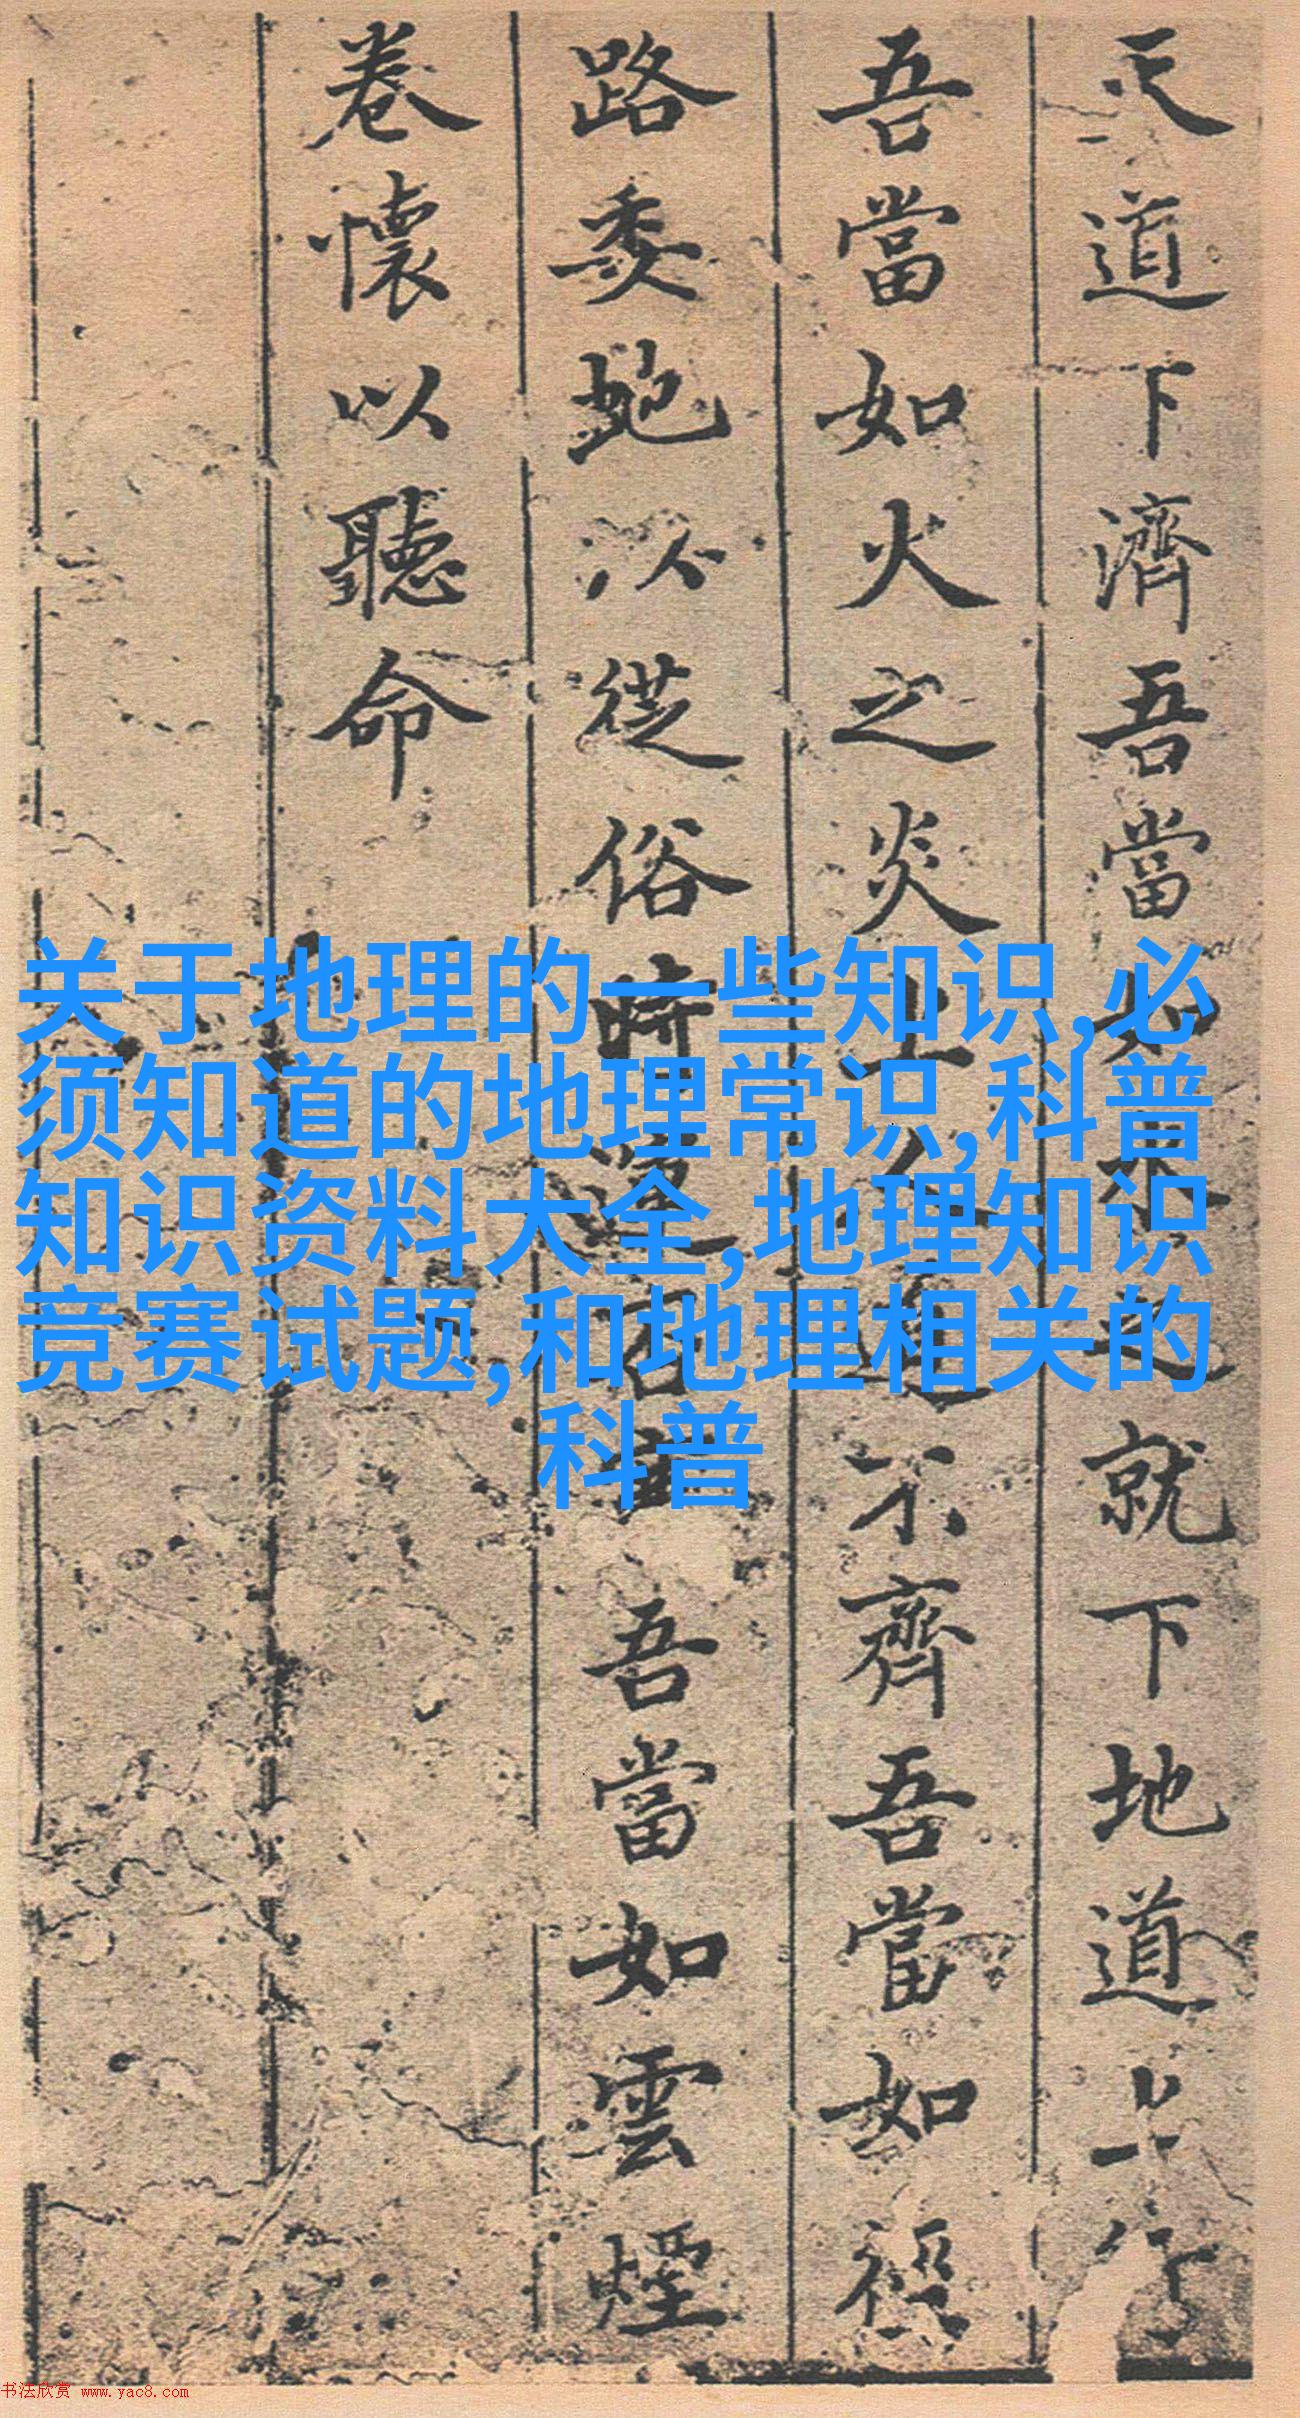 天道下濟吾當如水之就下地道上行
吾當如火之炎上人道不齊吾當如
路委蛇以從俗時遭
吾當如雲煙
卷懷以聽命
关于地理的一些知识,必
须知道的地理常识,科普
知识资料大全,地理知识
竞赛试题,和地理相关的
科普
书法欣赏 www.yac8.com